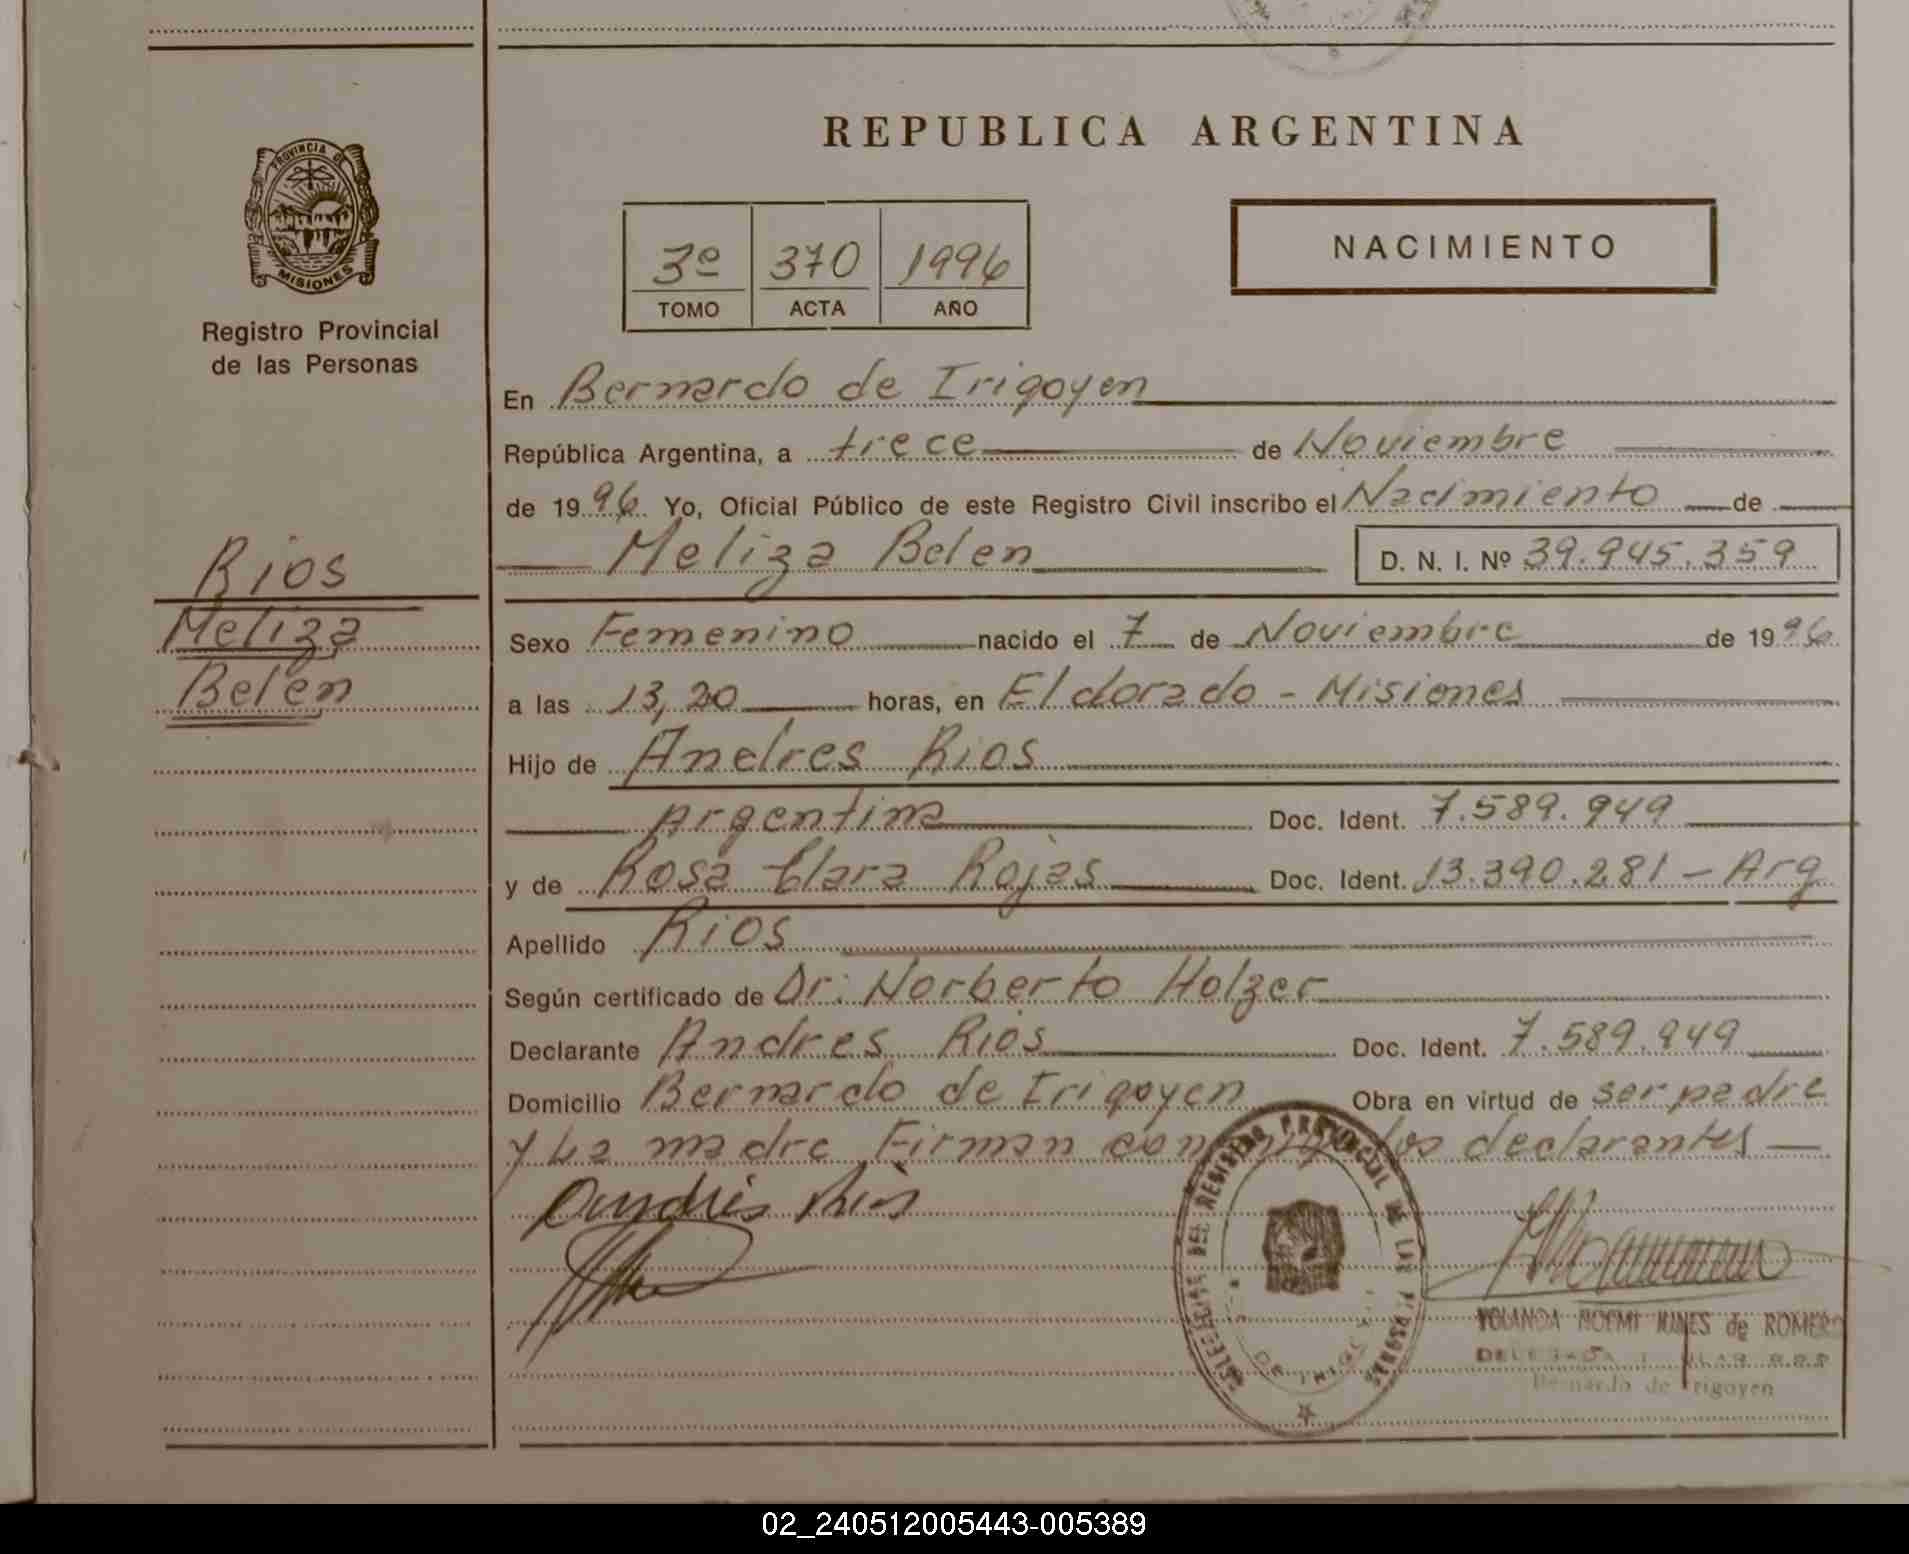 REPUBLICA ARGENTINA
PROVINCIA DE
MISIONES
Registro Provincial
de las Personas
3º 370 1996
TOMO ACTA AÑO
NACIMIENTO
En Bernardo de Irigoyen
República Argentina, a trece de Noviembre
de 1996 Yo, Oficial Público de este Registro Civil inscribo el Nacimiento de
Meliza Belen D. N. I. Nº 39.945.359
Rios
Meliza
Belen
Sexo Femenino nacido el 7 de Noviembre de 1996
a las 13,20 horas, en Eldorado - Misiones
Hijo de Andres Rios
Argentina Doc. Ident. 7.589.949
y de Rosa Clara Rojas Doc. Ident. 13.390.281 - Arg
Apellido Rios
Según certificado de Dr: Norberto Holzer
Declarante Andres Rios Doc. Ident. 7.589.949
Domicilio Bernardo de Irigoyen Obra en virtud de ser padre
y La madre Firman los declarantes
Andrés Ríos
DEL REGISTRO PROVINCIAL DE LAS PERSONAS
YOLANDA NOEMI de ROMERO
DELEGADA
Bernardo de Irigoyen
02_240512005443-005389